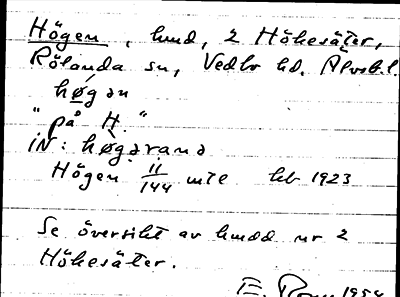 Högen, hmd, 2 Hökesäter,
Rölanda sn, Vedbo hd, Älvsb.l.
høgən
"på H."
iN: høgərana
Högen 11/144 mtl hb 1923
Se översikt av hmdd nr 2
Hökesäter.
1954